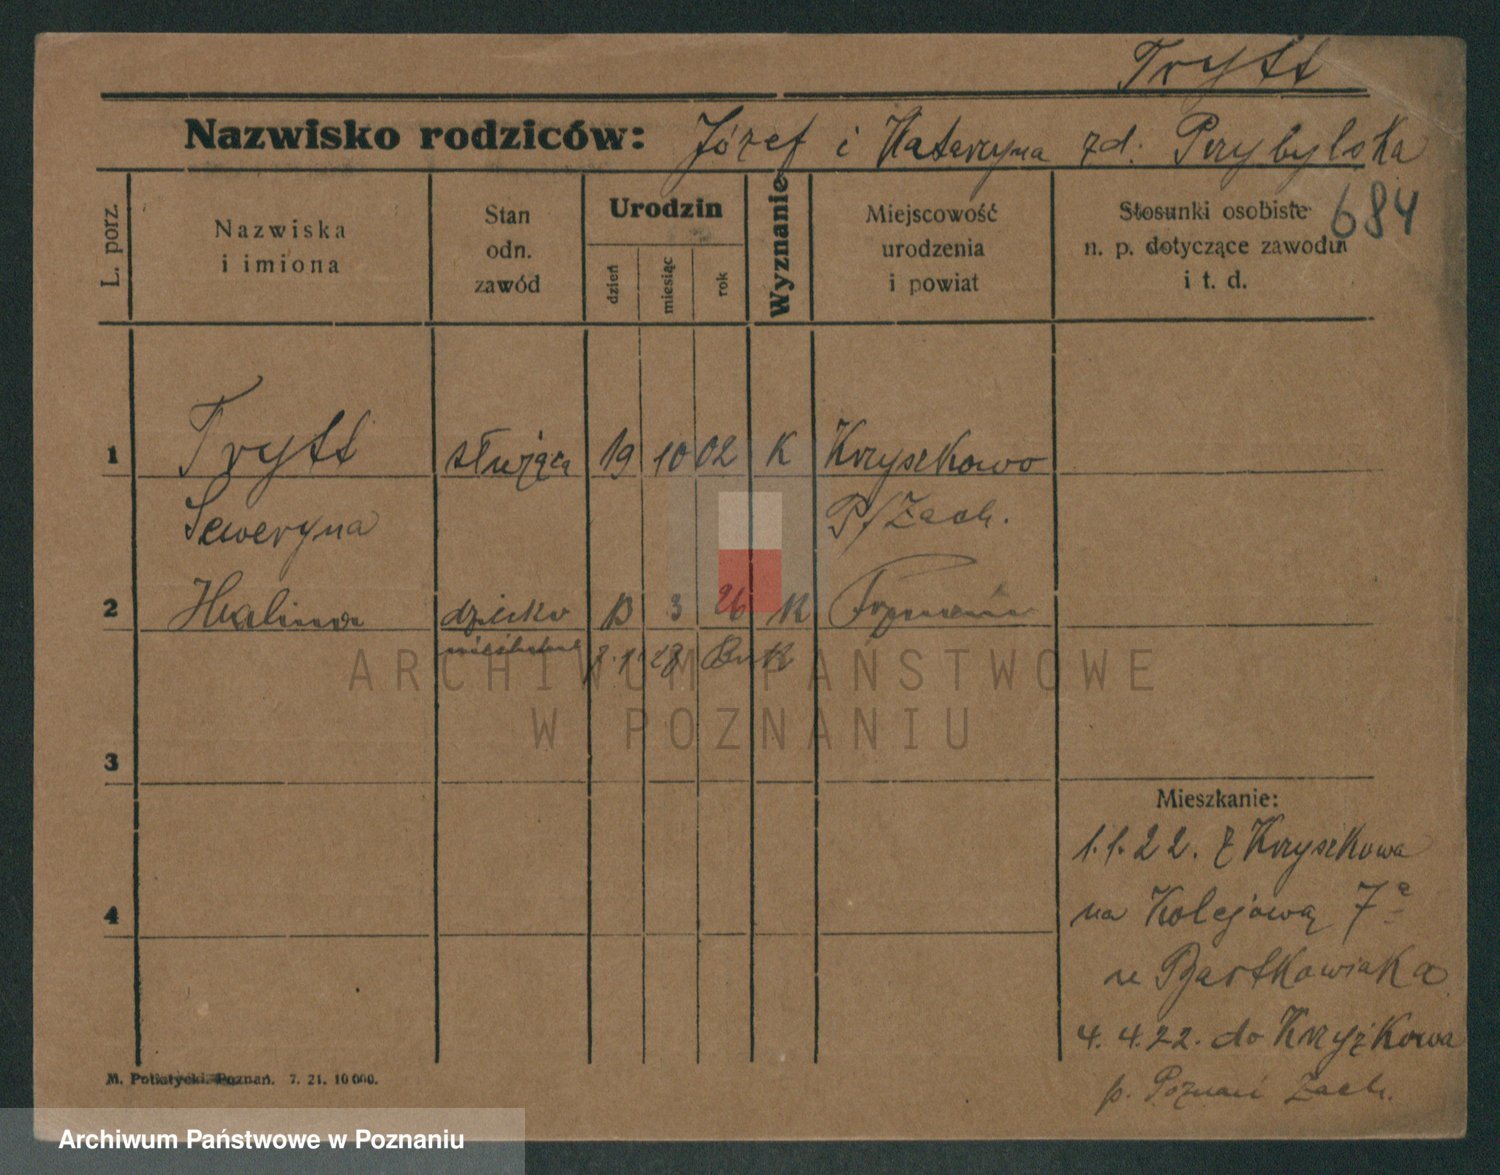 Trytt
Nazwisko rodziców: Józef i Katarzyna zd. Przybylska
684
L. porz.
Nazwiska
i imiona
Stan
odn.
zawód
Urodzin
dzień
miesiąc
rok
Wyznanie
Miejscowość
urodzenia
i powiat
Stosunki osobiste
n. p. dotyczące zawodu
i t. d.
1 Trytt służąca 19 10 02 K Kryszkowo
Seweryna P/Zach.
2 Halina dziecko 13 3 26 K Poznań
3
4
Mieszkanie:
1.1.22. z Kryszkowa
na Kolejową 7a
u Bartkowiaka
4.4.22. do Krzyżkowa
p. Poznań Zach.
M. Pohatycki. Poznań. 7. 21. 10 000.
ARCHIWUM PAŃSTWOWE
W POZNANIU
Archiwum Państwowe w Poznaniu